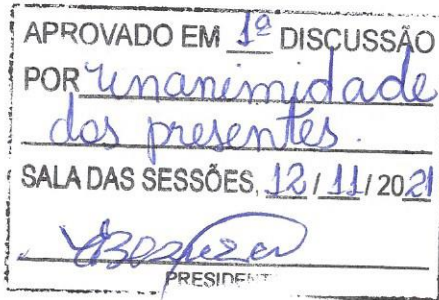 APROVADO EM 1ª DISCUSSÃO
POR unanimidade
dos presentes.
SALA DAS SESSÕES, 12 / 11 / 2021
PRESIDENT